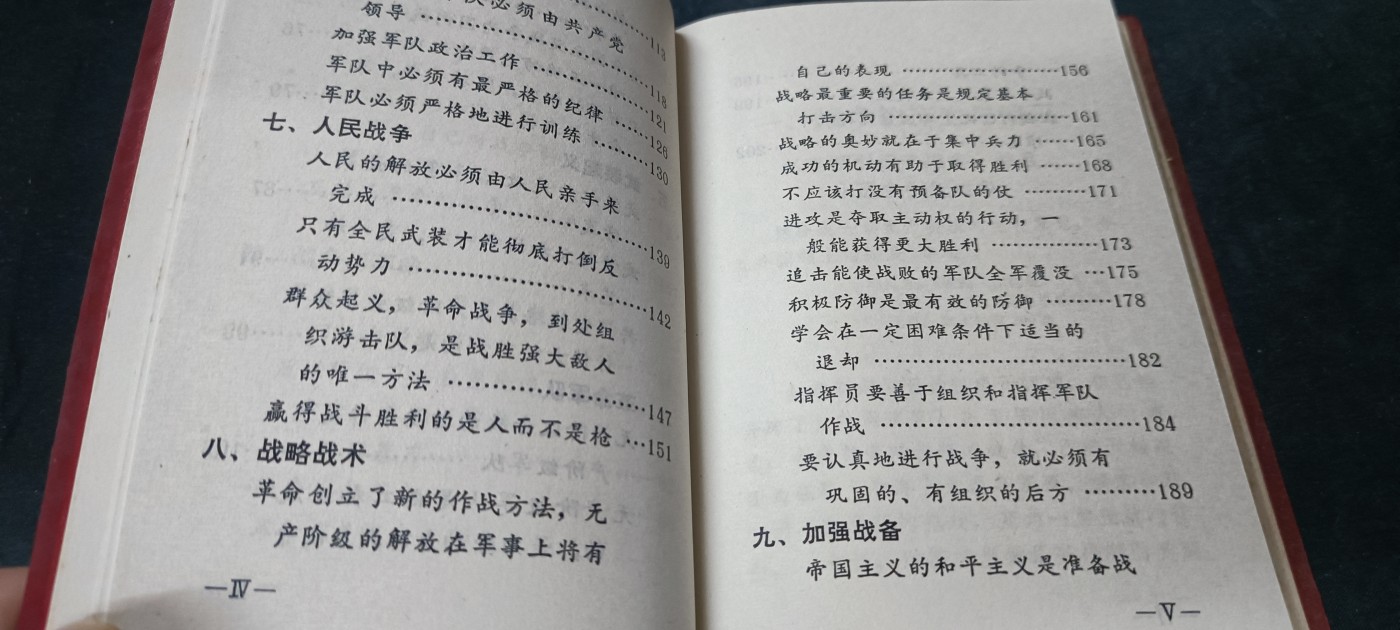 队必须由共产党
领导 ……………………113
加强军队政治工作 …………118
军队中必须有最严格的纪律 ……121
军队必须严格地进行训练 ………126
七、人民战争 130
人民的解放必须由人民亲手来
完成 ……………………139
只有全民武装才能彻底打倒反
动势力 ……………………142
群众起义，革命战争，到处组
织游击队，是战胜强大敌人
的唯一方法 ………………147
赢得战斗胜利的是人而不是枪 …151
八、战略战术
革命创立了新的作战方法，无
产阶级的解放在军事上将有
—Ⅳ—
自己的表现 ……………………156
战略最重要的任务是规定基本
打击方向 ……………………161
战略的奥妙就在于集中兵力 ……165
成功的机动有助于取得胜利 ……168
不应该打没有预备队的仗 ………171
进攻是夺取主动权的行动，一
般能获得更大胜利 ……………173
追击能使战败的军队全军覆没 …175
积极防御是最有效的防御 ………178
学会在一定困难条件下适当的
退却 ……………………………182
指挥员要善于组织和指挥军队
作战 ……………………………184
要认真地进行战争，就必须有
巩固的、有组织的后方 ………189
九、加强战备
帝国主义的和平主义是准备战
—Ⅴ—